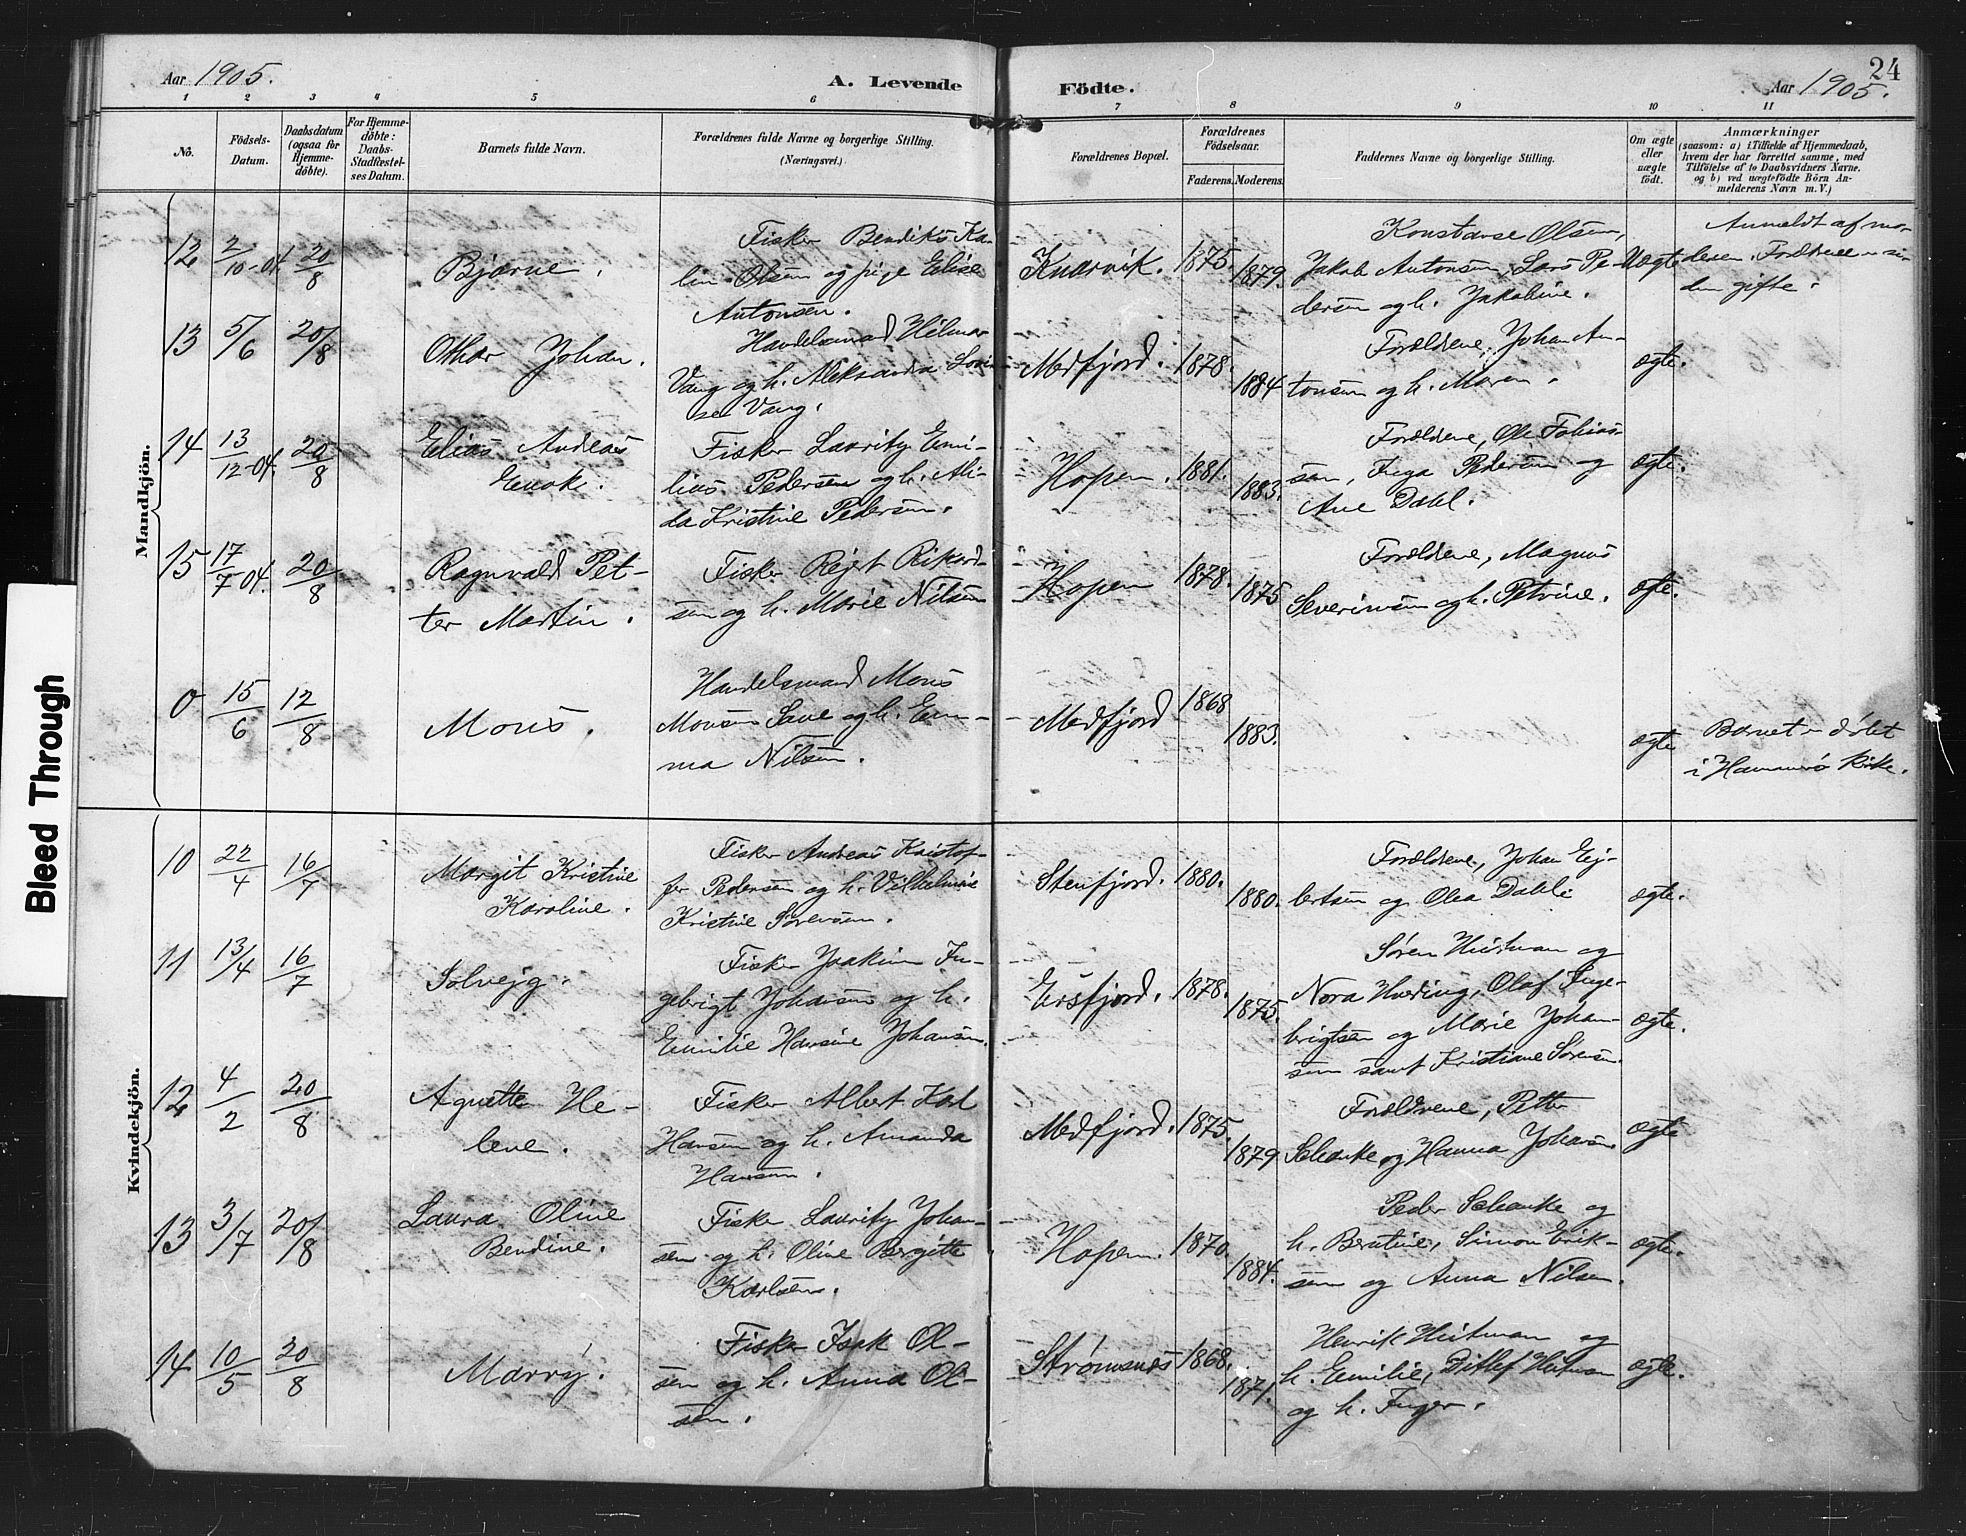 Aar 1905.
A. Levende Födte.
24
Aar 1905.
1 2 3 4 5 6 7 8 9 10 11
No.
Födsels-
Datum.
Daabsdatum
(ogsaa for
Hjemme-
døbte).
For Hjemme-
døbte:
Daabs-
Stadfæstel-
ses Datum.
Barnets fulde Navn.
Forældrenes fulde Navne og borgerlige Stilling.
(Næringsvei.)
Forældrenes Bopæl.
Forældrenes
Födselsaar.
Faderens. Moderens.
Faddernes Navne og borgerlige Stilling.
Om ægte
eller
uægte
født.
Anmærkninger
(saasom: a) i Tilfælde af Hjemmedaab,
hvem der har forrettet samme, med
Tilføielse af to Daabsvidners Navne.
og b) ved uægtefødte Börn An-
melderens Navn m.V.)
Mandkjön.
12 2/10-04. 20/8
Bjarne.
Fisker Bendiks Ka-
lin Olsen og pige Elise
Antonsen.
Knarvik. 1875. 1879.
Konstanse Olsen,
Jakob Antonsen, Lars Pe-
dersen og h. Jakobine.
Uægte
Anmeldt af mo-
deren. Forældrene
den gifte.
13 5/6 20/8
Othar Johan.
Handelsmand Hilmar
Vang og h. Aleksandra Lovi-
se Vang.
Medfjord. 1878. 1884
Forældrene, Johan An-
tonsen og h. Maren.
ægte.
14 13/12-04. 20/8
Elias Andreas
Enok.
Fisker Lauritz Emi-
lius Pedersen og h. Ali-
da Kristine Pedersen.
Hopen. 1881. 1883.
Forældrene, Ole Tobias-
sen, Inga Pedersen og
Ane Dahl.
ægte.
15 17/7 04. 20/8
Ragnvald Pet-
ter Martin.
Fisker Rejet Rikard-
sen og h. Marie Nilsen
Hopen 1878. 1875
Forældrene, Magnus
Severinsen og h. Petrine.
ægte.
0 15/6 12/8
Mons.
Handelsmand Mons
Monsen Saue og h. Em-
ma Nilsen.
Medfjord 1868 1883.
ægte
Barnet døbt
i Hammerö Kirke.
Kvindekjön.
10 22/4 16/7
Margit Kristine
Karoline.
Fisker Andreas Kristof-
fer Pedersen og h. Vilhelmine
Kristine Sørensen.
Stenfjord. 1880. 1880.
Forældrene, Johan Ej-
bertsen og Olea Dahl
ægte.
11 13/4 16/7
Solvejg.
Fisker Joakim In-
gebrigt Johansen og h.
Emilie Hansine Johansen.
Ersfjord. 1878. 1875.
Søren Hveding og
Nora Hveding, Olaf Inge-
brigtsen og Marie Johan-
sen samt Kristiane Sørensen.
ægte.
12 4/2 20/8
Agnette He-
lene.
Fisker Albert Karl
Hansen og h. Amanda
Hansen.
Medfjord. 1875. 1879
Forældrene, Petter
Schanke og Hanna Johansen.
ægte
13 3/7 20/8
Laura Oline
Bendine.
Fisker Lauritz Johan-
sen og h. Oline Bergitte
Karlsen.
Hopen. 1870. 1884.
Peder Schanke og
h. Berntine, Simon Erik-
sen og Anna Nilsen.
ægte.
14 10/5 20/8
Marry.
Fisker Isak Ol-
sen og h. Anna Ol-
sen.
Strømsnes 1868. 1871.
Henrik Hutman og
h. Emilie, Ditlef Hutman
og h. Inger.
ægte.
Bleed Through